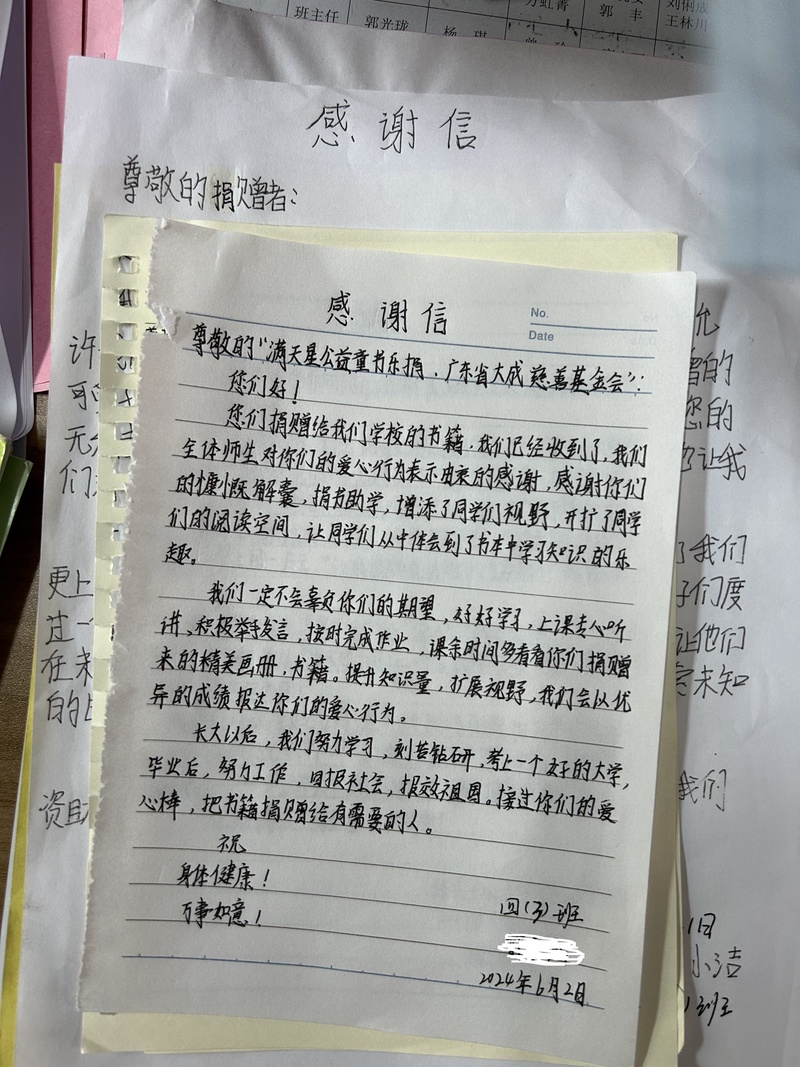 班主任 郭光珑 杨琪 方虹菁 郭丰 刘俐成
王林川
感谢信
尊敬的捐赠者:
感谢信
No.
Date
尊敬的“满天星公益童书乐捐.广东省大成慈善基金会”:
您们好!
您们捐赠给我们学校的书籍,我们已经收到了,我们
全体师生对你们的爱心行为表示由衷的感谢,感谢你们
的慷慨解囊,捐书助学,增添了同学们视野,开扩了同学
们的阅读空间,让同学们从中体会到了书本中学习知识的乐
趣。
我们一定不会辜负你们的期望,好好学习,上课专心听
讲、积极举手发言,按时完成作业,课余时间多看看你们捐赠
来的精美画册,书籍。提升知识量,扩展视野,我们会以优
异的成绩报达你们的爱心行为。
长大以后,我们努力学习,刻苦钻研,考上一个好的大学,
毕业后,努力工作,回报社会,报效祖国。接过你们的爱
心棒,把书籍捐赠给有需要的人。
祝
身体健康!
万事如意!
四(3)班
2024年6月2日
许
可
无
们
更上
过一
在未
的
资助
允
曾的
您的
让我
了我们
子们度
让他们
未知
我们
1日
小洁
班